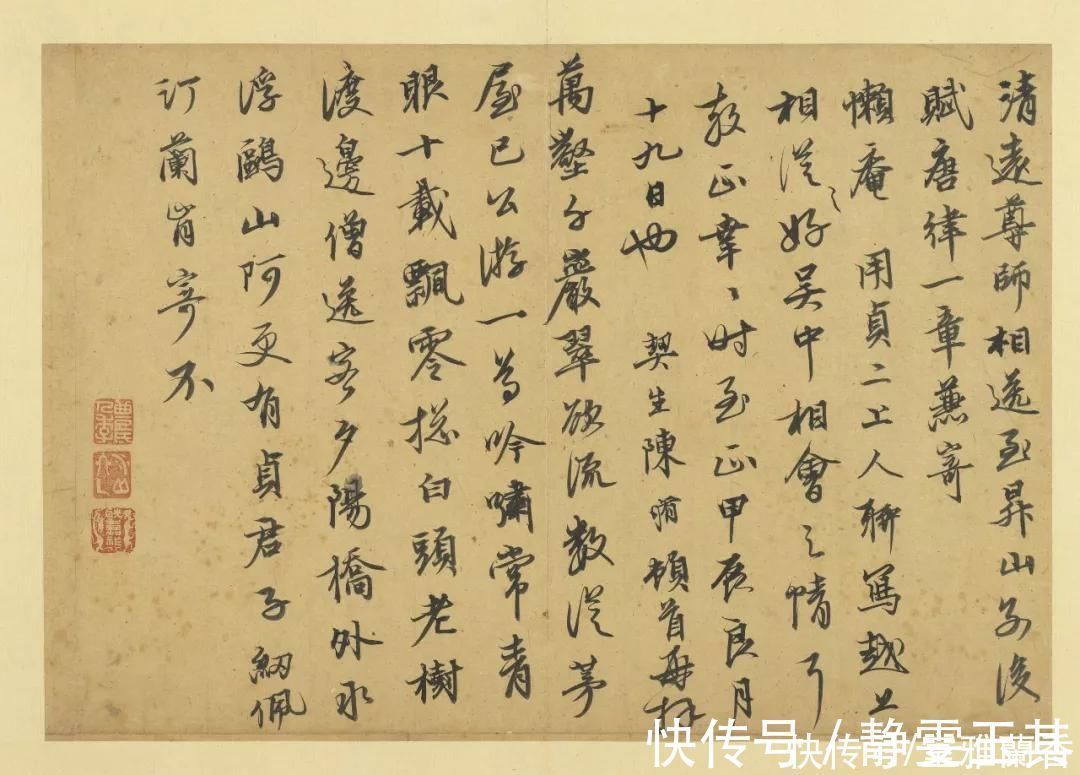 清遠尊師相送至昇山別後
賦唐律一章兼寄
懶庵 用貞二上人聊寫越上
相從之好吳中相會之情
教正幸〻時至正甲辰良月
十九日也 契生陳脩頓首再拜
萬壑千巖翠欲流數從茅
屋已公游一為吟嘯常青
眼十載飄零揔白頭老樹
渡邊僧送客夕陽橋外水
浮鷗山阿更有貞君子紉佩
汀蘭肯寄不
快传号/静雯王基
快传号/雅蘭香